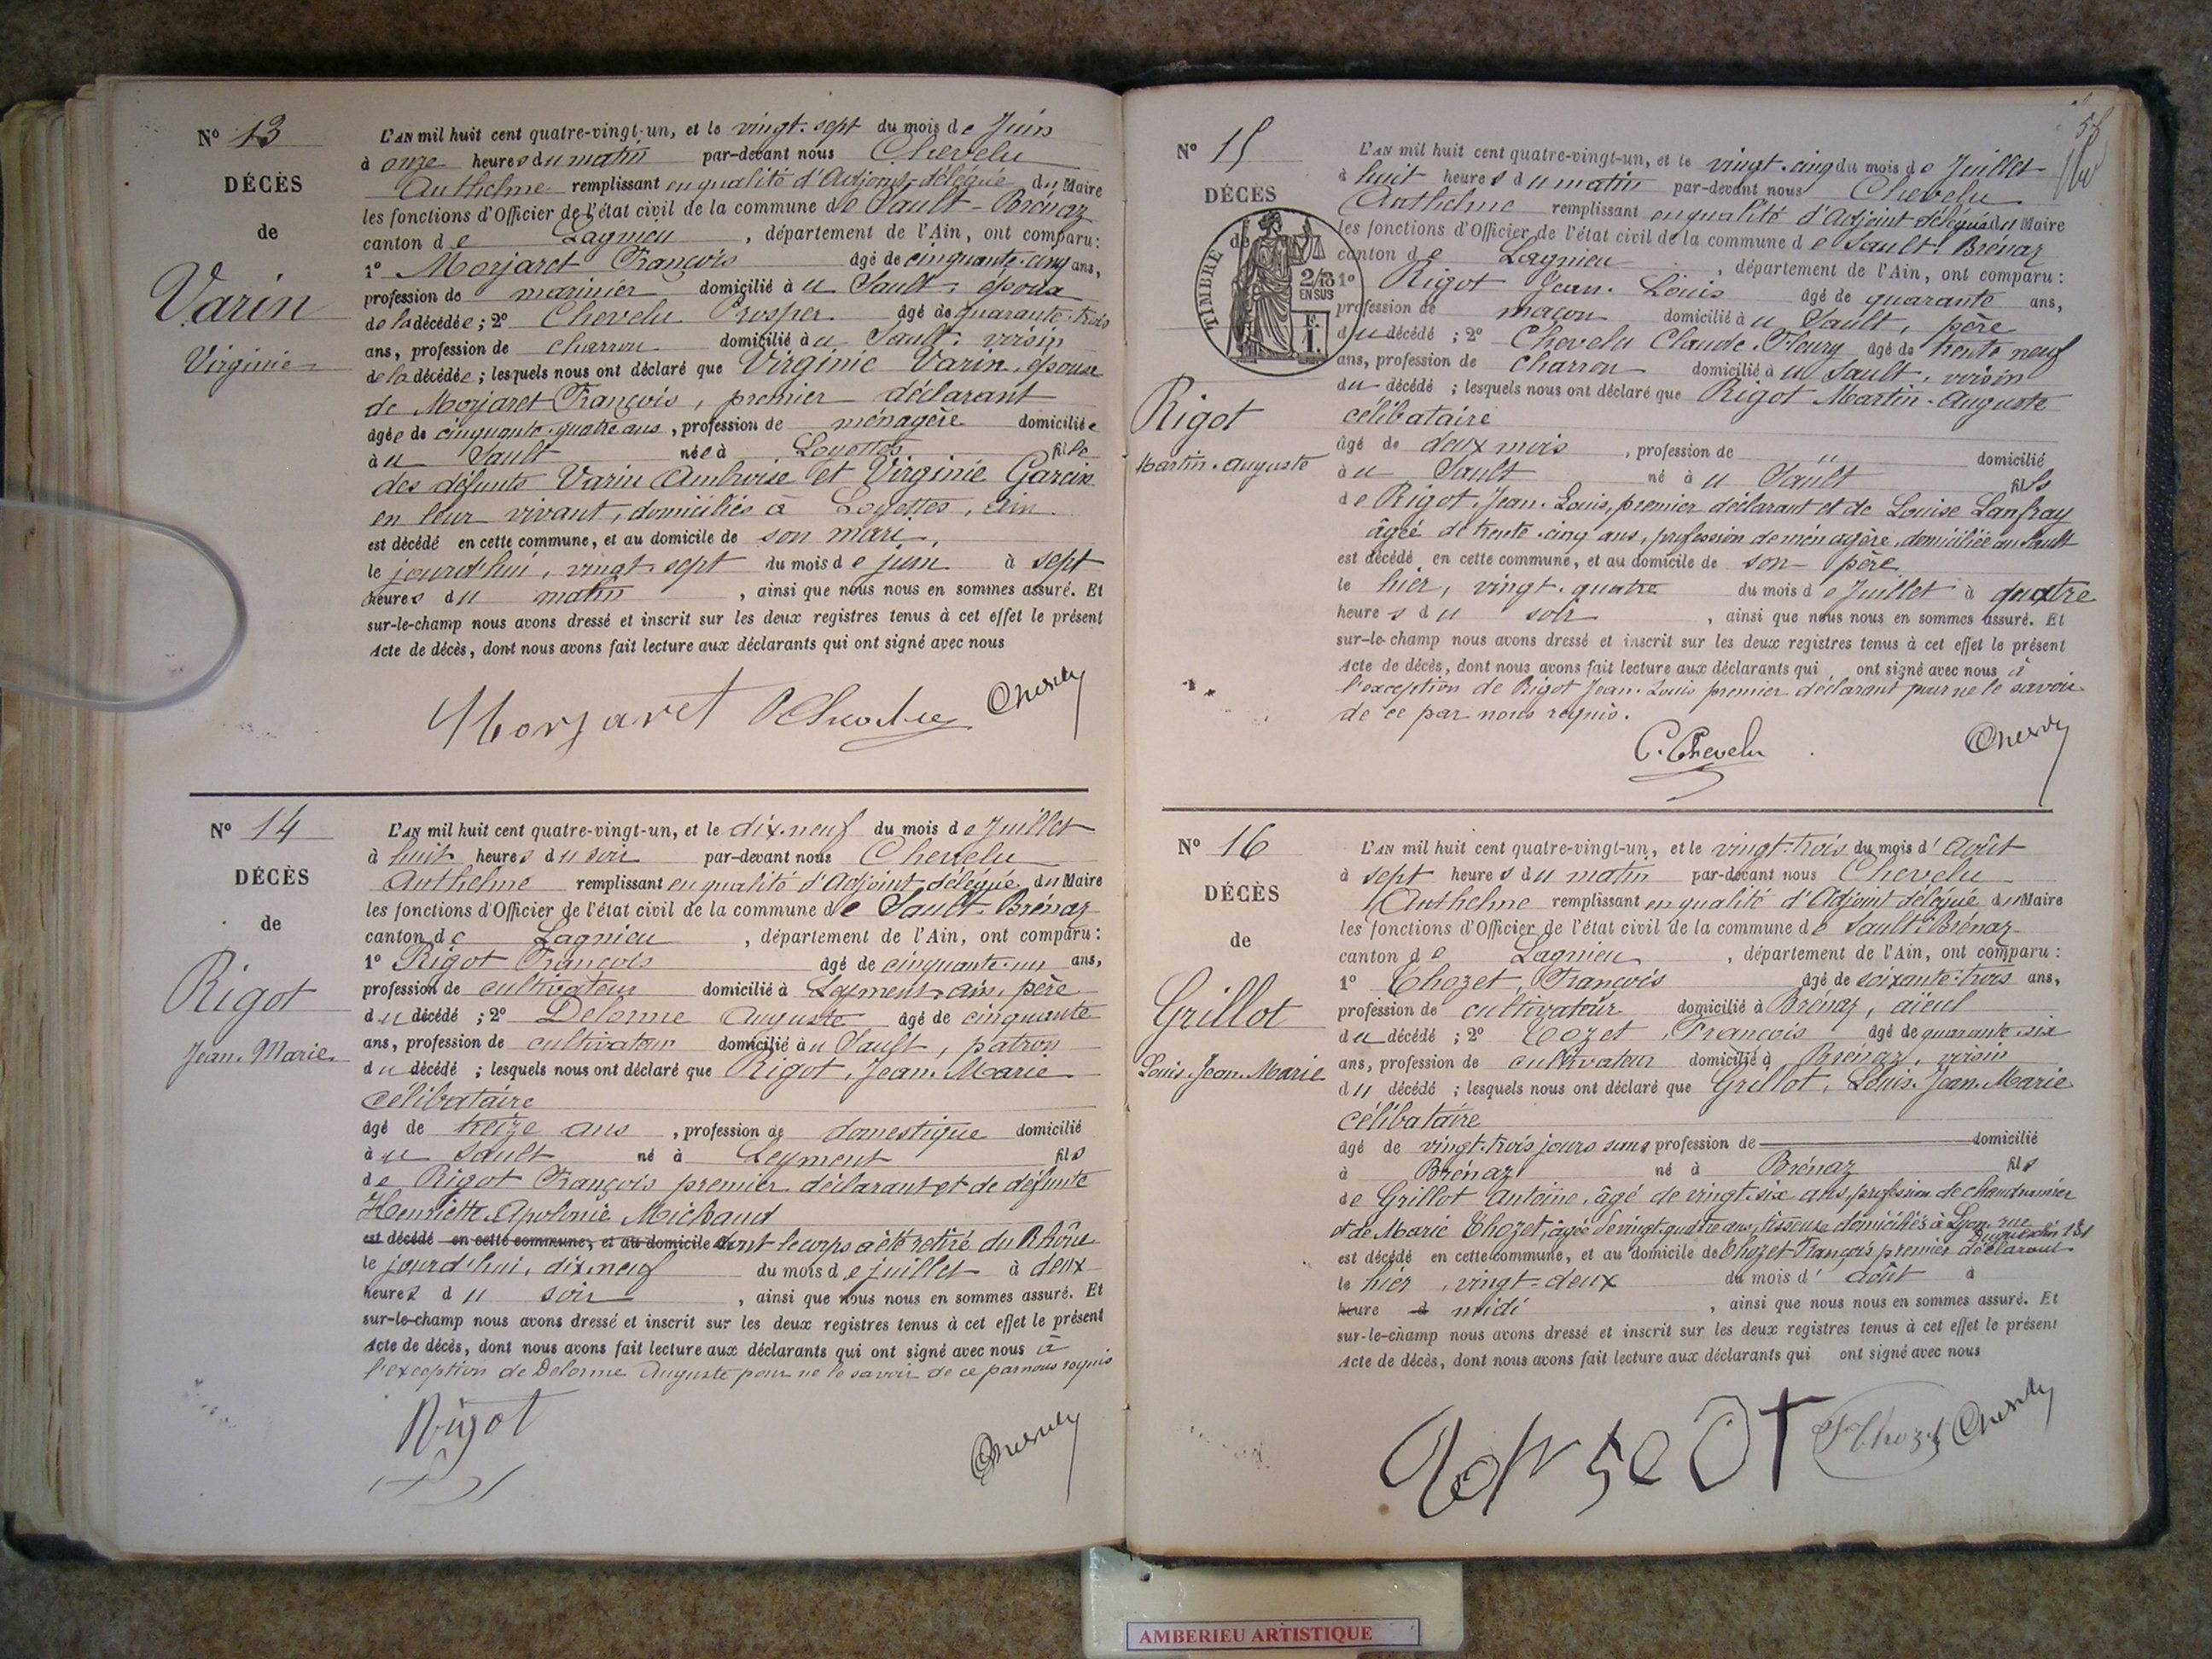 Nº 13
DÉCÈS
de
Varin
Virginie
L'AN mil huit cent quatre-vingt-un, et le vingt-sept du mois de Juin
à onze heures du matin par-devant nous Chevelu
Anthelme remplissant en qualité d'Adjoint-délégué du Maire
les fonctions d'Officier de l'état civil de la commune de Sault-Brénaz
canton de Lagnieu, département de l'Ain, ont comparu:
1º Morjaret François âgé de cinquante-cinq ans,
profession de marinier domicilié à u Sault, époux
de la décédée; 2º Chevelu Prosper âgé de quarante-trois
ans, profession de charron domicilié à u Sault, voisin
de la décédée; lesquels nous ont déclaré que Virginie Varin, épouse
de Morjaret François, premier déclarant
âgée de cinquante-quatre ans, profession de ménagère domiciliée
à u Sault née à Loyettes fille
des défunts Varin Ambroise et Virginie Garcin
en leur vivant, domiciliés à Loyettes, Ain
est décédé en cette commune, et au domicile de son mari,
le jourd'hui, vingt-sept du mois de juin à sept
heures du matin, ainsi que nous nous en sommes assuré. Et
sur-le-champ nous avons dressé et inscrit sur les deux registres tenus à cet effet le présent
Acte de décès, dont nous avons fait lecture aux déclarants qui ont signé avec nous
Morjaret
Nº 14
DÉCÈS
de
Rigot
Jean-Marie
L'AN mil huit cent quatre-vingt-un, et le dix-neuf du mois de Juillet
à huit heures du soir par-devant nous Chevelu
Anthelme remplissant en qualité d'Adjoint-délégué du Maire
les fonctions d'Officier de l'état civil de la commune de Sault-Brénaz
canton de Lagnieu, département de l'Ain, ont comparu:
1º Rigot François âgé de cinquante-un ans,
profession de cultivateur domicilié à Leyment, ain, père
du décédé; 2º Delorme Auguste âgé de cinquante
ans, profession de cultivateur domicilié à u Sault, patron
du décédé; lesquels nous ont déclaré que Rigot, Jean-Marie
célibataire
âgé de treize ans, profession de domestique domicilié
à u Sault né à Leyment fils
de Rigot François premier déclarant et de défunte
Henriette Apolonie Michaud
est décédé en cette commune, et au domicile dont le corps a été retiré du Rhône
le jourd'hui, dix-neuf du mois de juillet à deux
heures du soir, ainsi que nous nous en sommes assuré. Et
sur-le-champ nous avons dressé et inscrit sur les deux registres tenus à cet effet le présent
Acte de décès, dont nous avons fait lecture aux déclarants qui ont signé avec nous à
l'exception de Delorme Auguste pour ne le savoir de ce par nous requis
Rigot
Nº 15
DÉCÈS
de
TIMBRE
2/10
EN SUS
Rigot
Martin-Auguste
L'AN mil huit cent quatre-vingt-un, et le vingt-cinq du mois de Juillet
à huit heures du matin par-devant nous Chevelu
Anthelme remplissant en qualité d'Adjoint délégué du Maire
les fonctions d'Officier de l'état civil de la commune de Sault-Brénaz
canton de Lagnieu, département de l'Ain, ont comparu:
1º Rigot Jean-Louis âgé de quarante ans,
profession de maçon domicilié à u Sault, père
du décédé; 2º Chevelu Claude-Fleury âgé de trente neuf
ans, profession de charron domicilié à u Sault, voisin
du décédé; lesquels nous ont déclaré que Rigot Martin-Auguste
célibataire
âgé de deux mois, profession de " domicilié
à u Sault né à u Sault fils
de Rigot, Jean-Louis, premier déclarant et de Louise Lanfray
âgée de trente-cinq ans, profession de ménagère, domiciliée au Sault
est décédé en cette commune, et au domicile de son père
le hier, vingt-quatre du mois de Juillet à quatre
heures du soir, ainsi que nous nous en sommes assuré. Et
sur-le-champ nous avons dressé et inscrit sur les deux registres tenus à cet effet le présent
Acte de décès, dont nous avons fait lecture aux déclarants qui ont signé avec nous à
l'exception de Rigot Jean-Louis premier déclarant pour ne le savoir
de ce par nous requis.
C. Chevelu
Nº 16
DÉCÈS
de
Grillot
Louis-Jean-Marie
L'AN mil huit cent quatre-vingt-un, et le vingt-trois du mois d'août
à sept heures du matin par-devant nous Chevelu
Anthelme remplissant en qualité d'Adjoint délégué du Maire
les fonctions d'Officier de l'état civil de la commune de Sault-Brénaz
canton de Lagnieu, département de l'Ain, ont comparu:
1º Thozet, François âgé de soixante-trois ans,
profession de cultivateur domicilié à Brénaz, aïeul
du décédé; 2º Tozet, François âgé de quarante-six
ans, profession de cultivateur domicilié à Brénaz, voisin
du décédé; lesquels nous ont déclaré que Grillot, Louis-Jean-Marie
célibataire
âgé de vingt-trois jours sans profession de domicilié
à Brénaz né à Brénaz fils
de Grillot Antoine, âgé de vingt-six ans, profession de chaudronnier
et de Marie Thozet, âgée de vingt-quatre ans, tisseuse domiciliés à Lyon, rue
est décédé en cette commune, et au domicile de Thozet François premier déclarant
le hier, vingt-deux du mois d'août à
heure d midi, ainsi que nous nous en sommes assuré. Et
sur-le-champ nous avons dressé et inscrit sur les deux registres tenus à cet effet le présent
Acte de décès, dont nous avons fait lecture aux déclarants qui ont signé avec nous
AMBERIEU ARTISTIQUE